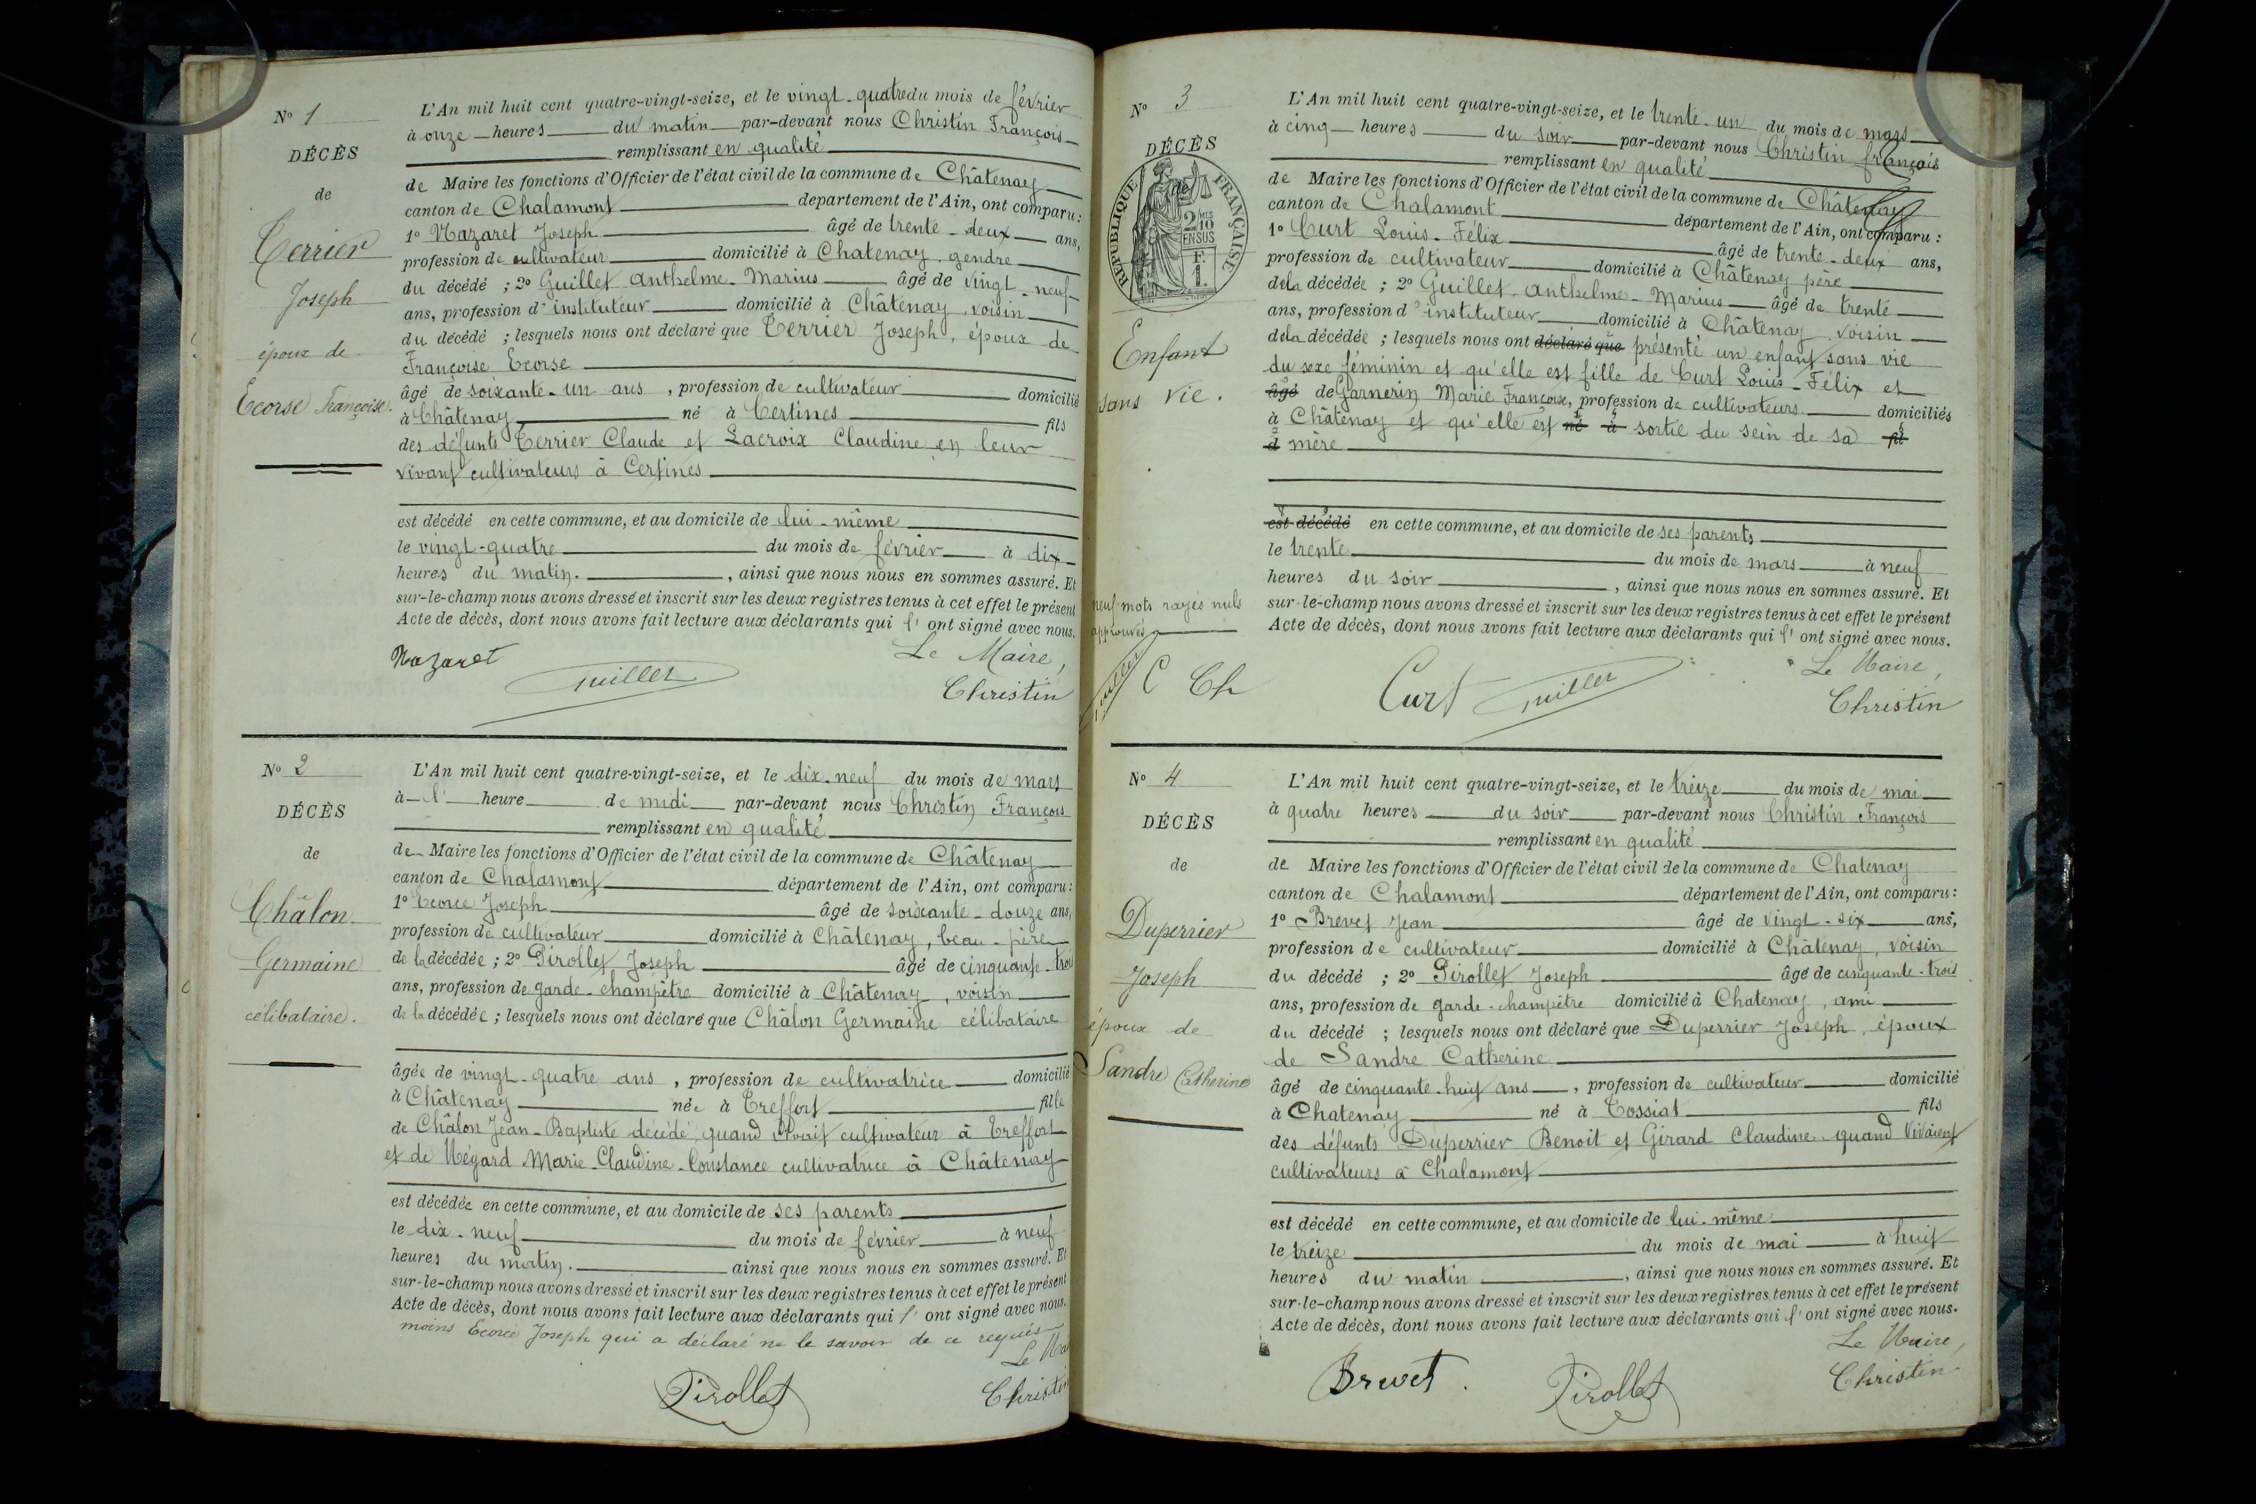 N° 1
DÉCÈS
de
Terrier
Joseph
époux de
Ecorse Françoise.
L'An mil huit cent quatre-vingt-seize, et le vingt-quatre du mois de février
à onze heures du matin par-devant nous Christin François
remplissant en qualité
de Maire les fonctions d'Officier de l'état civil de la commune de Châtenay
canton de Chalamont département de l'Ain, ont comparu :
1° Nazaret Joseph âgé de trente-deux ans,
profession de cultivateur domicilié à Chatenay, gendre
du décédé ; 2° Guillet Anthelme-Marius âgé de vingt-neuf
ans, profession d'instituteur domicilié à Châtenay, voisin
du décédé ; lesquels nous ont déclaré que Terrier Joseph, époux de
Françoise Ecorse
âgé de soixante-un ans, profession de cultivateur domicilié
à Châtenay né à Certines fils
des défunts Terrier Claude et Lacroix Claudine en leur
vivant cultivateurs à Certines
est décédé en cette commune, et au domicile de lui-même
le vingt-quatre du mois de février à dix
heures du matin. , ainsi que nous nous en sommes assuré. Et
sur-le-champ nous avons dressé et inscrit sur les deux registres tenus à cet effet le présent
Acte de décès, dont nous avons fait lecture aux déclarants qui l'ont signé avec nous.
Le Maire,
Nazaret Guillet Christin
N° 2
DÉCÈS
de
Châlon
Germaine
célibataire.
L'An mil huit cent quatre-vingt-seize, et le dix-neuf du mois de mars
à l'heure de midi par-devant nous Christin François
remplissant en qualité
de Maire les fonctions d'Officier de l'état civil de la commune de Châtenay
canton de Chalamont département de l'Ain, ont comparu :
1° Ecorce Joseph âgé de soixante-douze ans,
profession de cultivateur domicilié à Châtenay, beau-père
de la décédée ; 2° Pirollet Joseph âgé de cinquante-trois
ans, profession de garde-champêtre domicilié à Châtenay, voisin
de la décédée ; lesquels nous ont déclaré que Châlon Germaine célibataire
âgée de vingt-quatre ans, profession de cultivatrice domicilié
à Châtenay née à Treffort fille
de Châlon Jean-Baptiste décédé, quand vivait cultivateur à Treffort
et de Mégard Marie-Claudine-Constance cultivatrice à Châtenay
est décédée en cette commune, et au domicile de ses parents
le dix-neuf du mois de février à neuf
heures du matin. ainsi que nous nous en sommes assuré. Et
sur-le-champ nous avons dressé et inscrit sur les deux registres tenus à cet effet le présent
Acte de décès, dont nous avons fait lecture aux déclarants qui l'ont signé avec nous.
moins Ecorce Joseph qui a déclaré ne le savoir de ce requis
Le Ma
Pirollet Christin
N° 3
DÉCÈS
de
RÉPUBLIQUE FRANÇAISE
2/10 MES
EN SUS
F.
1.
Enfant
sans vie.
neuf mots rayés nuls
approuvés
Guillet C Ch
L'An mil huit cent quatre-vingt-seize, et le trente-un du mois de mars
à cinq heures du soir par-devant nous Christin françois
remplissant en qualité
de Maire les fonctions d'Officier de l'état civil de la commune de Châtenay
canton de Chalamont département de l'Ain, ont comparu :
1° Curt Louis-Félix âgé de trente-deux ans,
profession de cultivateur domicilié à Châtenay père
de la décédée ; 2° Guillet Anthelme-Marius âgé de trente
ans, profession d'instituteur domicilié à Châtenay voisin
de la décédée ; lesquels nous ont déclaré que présenté un enfant sans vie
du sexe féminin et qu'elle est fille de Curt Louis-Félix et
âgé de Garnerin Marie Françoise, profession de cultivateurs domiciliés
à Châtenay et qu'elle est né à sortie du sein de sa fil
d mère
est décédé en cette commune, et au domicile de ses parents
le trente du mois de mars à neuf
heures du soir , ainsi que nous nous en sommes assuré. Et
sur-le-champ nous avons dressé et inscrit sur les deux registres tenus à cet effet le présent
Acte de décès, dont nous avons fait lecture aux déclarants qui l'ont signé avec nous.
Le Maire,
Curt Guillet Christin
N° 4
DÉCÈS
de
Duperrier
Joseph
époux de
Sandre Catherine
L'An mil huit cent quatre-vingt-seize, et le treize du mois de mai
à quatre heures du soir par-devant nous Christin François
remplissant en qualité
de Maire les fonctions d'Officier de l'état civil de la commune de Chatenay
canton de Chalamont département de l'Ain, ont comparu :
1° Brevet Jean âgé de vingt-six ans,
profession de cultivateur domicilié à Châtenay, voisin
du décédé ; 2° Pirollet Joseph âgé de cinquante-trois
ans, profession de garde-champêtre domicilié à Chatenay, ami
du décédé ; lesquels nous ont déclaré que Duperrier Joseph, époux
de Sandre Catherine
âgé de cinquante-huit ans, profession de cultivateur domicilié
à Chatenay né à Tossiat fils
des défunts Duperrier Benoit et Girard Claudine quand vivaient
cultivateurs à Chalamont
est décédé en cette commune, et au domicile de lui-même
le treize du mois de mai à huit
heures du matin , ainsi que nous nous en sommes assuré. Et
sur-le-champ nous avons dressé et inscrit sur les deux registres tenus à cet effet le présent
Acte de décès, dont nous avons fait lecture aux déclarants qui l'ont signé avec nous.
Le Maire,
Brevet. Pirollet Christin